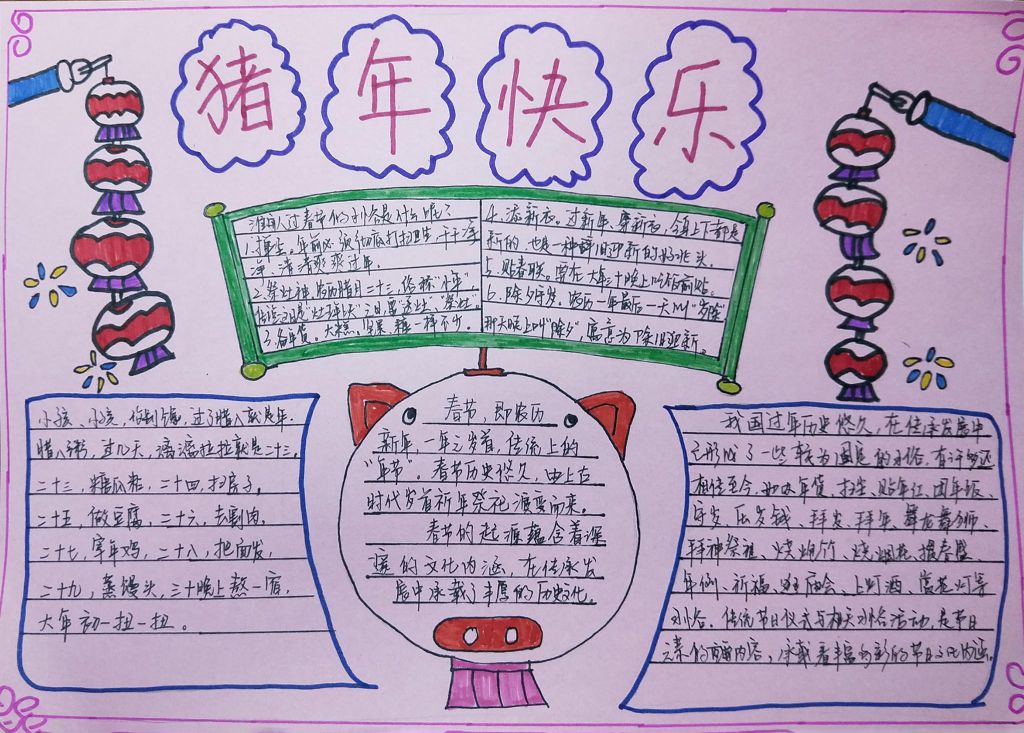 猪年快乐
淮阴人过春节的习俗是什么呢?
1.掸尘。年前必须彻底打扫卫生,干干净
净、清清爽爽过年。
2.祭灶神。农历腊月二十三,俗称"小年"
传说这日是"灶王爷上天"之日,要"送灶"、"祭灶"
3.备年货。大糕、坚果、糖一样不少。
4.添新衣。过新年、穿新衣,全身上下都是
新的,也是一种辞旧迎新的好兆头。
5.贴春联。常在大年三十晚上吃饭前贴。
6.除夕守岁。农历一年最后一天叫"岁除
那天晚上叫"除夕",寓意为除旧迎新。
小孩、小孩,你别馋,过了腊八就是年,
腊八粥,过几天,漓漓拉拉就是二十三,
二十三,糖瓜粘,二十四,扫房子。
二十五,做豆腐,二十六,去割肉,
二十七,宰年鸡,二十八,把面发,
二十九,蒸馒头,三十晚上熬一宿,
大年初一扭一扭。
春节,即农历
新年,一年之岁首,传统上的
"年节"。春节历史悠久,由上古
时代岁首祈年祭祀演变而来。
春节的起源蕴含着深
邃的文化内涵,在传承发
展中承载了丰厚的历史文化。
我国过年历史悠久,在传承发展中
已形成了一些较为固定的习俗,有许多还
相传至今,如办年货、扫尘、贴年红、团年饭、
守岁、压岁钱、拜岁、拜年、舞龙舞狮、
拜神祭祖、烧炮竹、烧烟花、掼春盛、
年例、祈福、逛庙会、上灯酒、赏花灯等
习俗。传统节日仪式与相关习俗活动,是节日
元素的重要内容,承载着丰富多彩的节日文化内涵。